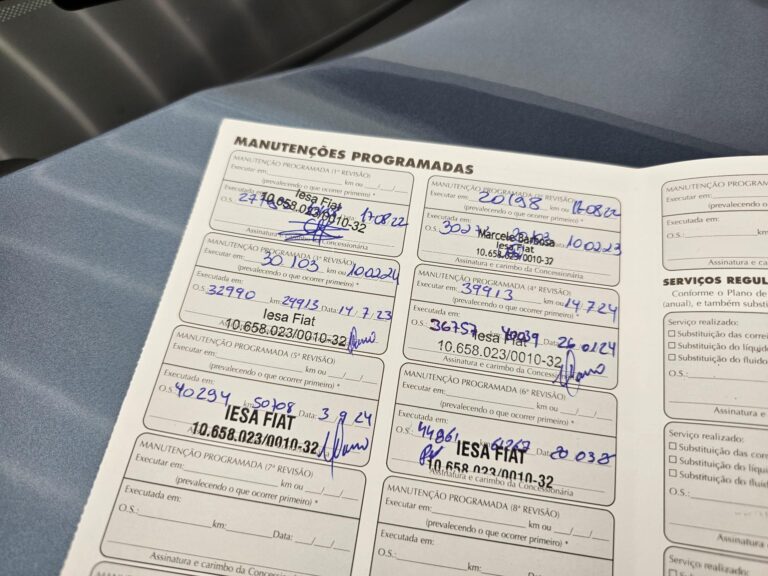 MANUTENÇÕES PROGRAMADAS
MANUTENÇÃO PROGRAMADA (1ª REVISÃO)
Executar em: km ou
(prevalecendo o que ocorrer primeiro) *
Iesa Fiat
Executada em:
10.658.023/0010-32
O.S.: Data: 17.08.22
Assinatura e carimbo da Concessionária
MANUTENÇÃO PROGRAMADA (2ª REVISÃO)
Executar em: 20198 km ou 17.08.22
(prevalecendo o que ocorrer primeiro) *
Executada em:
O.S.: 10.02.23
Marcele Barbosa
Iesa Fiat
10.658.023/0010-32
Assinatura e carimbo da Concessionária
MANUTENÇÃO PROGRAMADA (3ª REVISÃO)
Executar em: 30 103 km ou 10.02.24
(prevalecendo o que ocorrer primeiro) *
Executada em:
O.S.: 32990 km: 29913 Data: 14/7/23
Iesa Fiat
10.658.023/0010-32
MANUTENÇÃO PROGRAMADA (4ª REVISÃO)
Executar em: 39913 km ou 14.7.24
(prevalecendo o que ocorrer primeiro) *
Executada em:
O.S.: 36757 40039 26.01.24
Iesa Fiat
10.658.023/0010-32
Assinatura e carimbo da
MANUTENÇÃO PROGRAMADA (5ª REVISÃO)
Executar em: km ou
(prevalecendo o que ocorrer primeiro) *
Executada em:
O.S.: 40294 km: 50708 Data: 3.9.24
IESA FIAT
10.658.023/0010-32
MANUTENÇÃO PROGRAMADA (6ª REVISÃO)
Executar em: km ou
(prevalecendo o que ocorrer primeiro) *
Executada em:
O.S.: 44861
IESA FIAT
10.658.023/0010-32
Assinatura e carimbo da Concessionária
MANUTENÇÃO PROGRAMADA (7ª REVISÃO)
Executar em: km ou
(prevalecendo o que ocorrer primeiro) *
Executada em:
O.S.: km: Data:
Assinatura e carimbo da Concessionária
MANUTENÇÃO PROGRAMADA (8ª REVISÃO)
Executar em: km ou
(prevalecendo o que ocorrer primeiro) *
Executada em:
O.S.: km: Data:
MANUTENÇÃO PROGRAMADA
Executar em:
(prevalecendo o
Executada em:
O.S.:
Assinatura e
SERVIÇOS REGUL
Conforme o Plano de
(anual), e também substit
Serviço realizado:
Substituição das correi
Substituição do líquido
Substituição do fluido
O.S.:
Assinatura e
Serviço realizado:
Substituição das corre
Substituição do líqui
Substituição do fluid
O.S.:
Assinatura
Serviço realizado:
Substituição das